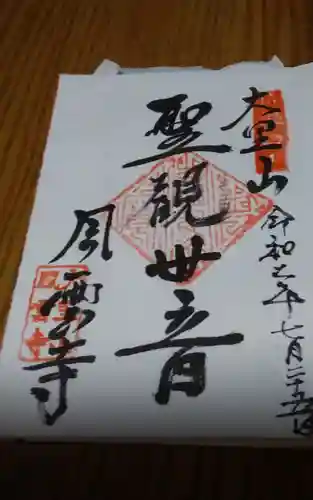 大里山
令和元年七月二十五日
聖観世音
風雲寺